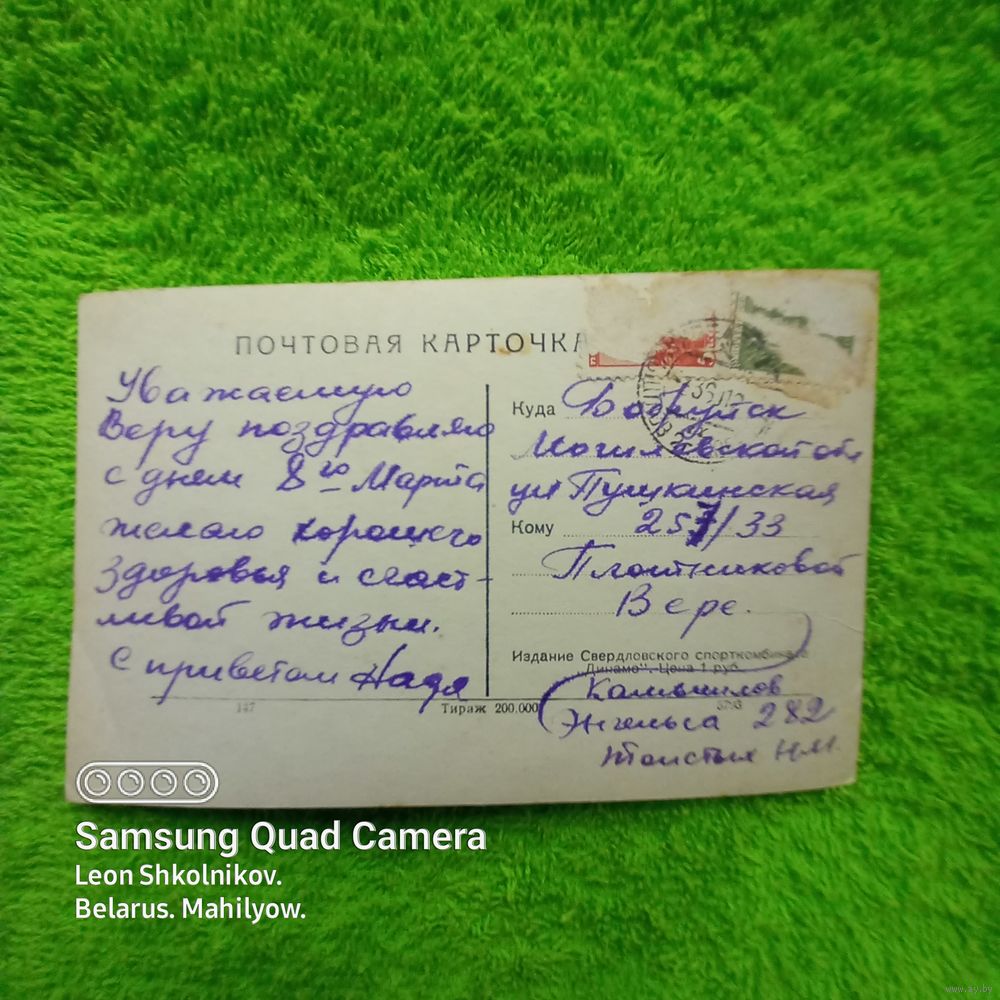 ПОЧТОВАЯ КАРТОЧКА
Уважаемую
Веру поздравляю
с днем 8го Марта
желаю хорошего
здоровья и счаст-
ливой жизни.
С приветом Надя
Куда Бобруйск
Могилевской обл
ул Пушкинская
Кому 257/33
Плотниковой
Вере.
Издание Свердловского спорткомбината
„Динамо". Цена 1 руб.
Камышлов
Энгельса 282
Толстых Н.М.
147
Тираж 200.000
Samsung Quad Camera
Leon Shkolnikov.
Belarus. Mahilyow.
www.ay.by